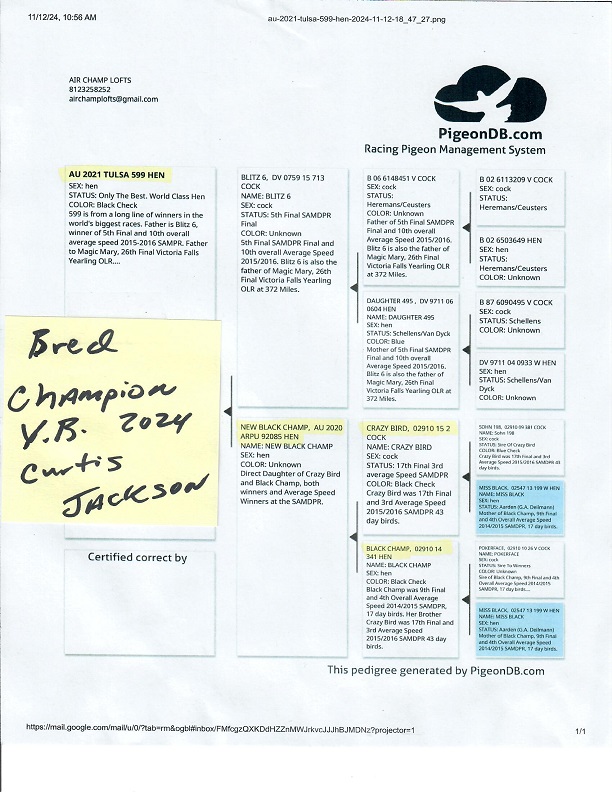 11/12/24, 10:56 AM
au-2021-tulsa-599-hen-2024-11-12-18_47_27.png
AIR CHAMP LOFTS
8123258252
airchamplofts@gmail.com
PigeonDB.com
Racing Pigeon Management System
AU 2021 TULSA 599 HEN
SEX: hen
STATUS: Only The Best. World Class Hen
COLOR: Black Check
599 is from a long line of winners in the
world's biggest races. Father is Blitz 6,
winner of 5th Final and 10th overall
average speed 2015-2016 SAMDPR. Father
to Magic Mary, 26th Final Victoria Falls
Yearling OLR....
Bred
Champion
Y.B. 2024
Curtis
JACKSON
Certified correct by
BLITZ 6, DV 0759 15 713
COCK
NAME: BLITZ 6
SEX: cock
STATUS: 5th Final SAMDPR
Final
COLOR: Unknown
5th Final SAMDPR Final and
10th overall Average Speed
2015/2016. Blitz 6 is also the
father of Magic Mary, 26th
Final Victoria Falls Yearling
OLR at 372 Miles.
NEW BLACK CHAMP, AU 2020
ARPU 92085 HEN
NAME: NEW BLACK CHAMP
SEX: hen
COLOR: Unknown
Direct Daughter of Crazy Bird
and Black Champ, both
winners and Average Speed
Winners at the SAMDPR.
B 06 6148451 V COCK
SEX: cock
STATUS:
Heremans/Ceusters
COLOR: Unknown
Father of 5th Final SAMDPR
Final and 10th overall
Average Speed 2015/2016.
Blitz 6 is also the father of
Magic Mary, 26th Final
Victoria Falls Yearling OLR
at 372 Miles.
DAUGHTER 495 , DV 9711 06
0604 HEN
NAME: DAUGHTER 495
SEX: hen
STATUS: Schellens/Van Dyck
COLOR: Blue
Mother of 5th Final SAMDPR
Final and 10th overall
Average Speed 2015/2016.
Blitz 6 is also the father of
Magic Mary, 26th Final
Victoria Falls Yearling OLR
at 372 Miles.
CRAZY BIRD, 02910 15 2
COCK
NAME: CRAZY BIRD
SEX: cock
STATUS: 17th Final 3rd
average Speed SAMDPR
COLOR: Black Check
Crazy Bird was 17th Final
and 3rd Average Speed
2015/2016 SAMDPR 43
day birds.
BLACK CHAMP, 02910 14
341 HEN
NAME: BLACK CHAMP
SEX: hen
COLOR: Black Check
Black Champ was 9th Final
and 4th Overall Average
Speed 2014/2015 SAMDPR,
17 day birds. Her Brother
Crazy Bird was 17th Final and
3rd Average Speed
2015/2016 SAMDPR 43 day
birds.
B 02 6113209 V COCK
SEX: cock
STATUS:
Heremans/Ceusters
B 02 6503649 HEN
SEX: hen
STATUS:
Heremans/Ceusters
COLOR: Unknown
B 87 6090495 V COCK
STATUS: Schellens
COLOR: Unknown
DV 9711 04 0933 W HEN
SEX: hen
STATUS: Schellens/Van
Dyck
COLOR: Unknown
COCK
SEX: cock
STATUS: Sire Of Crazy Bird
COLOR: Blue Check
Crazy Bird was 17th Final and 3rd
Average Speed 2015/2016 SAMDPR 43
day birds.
MISS BLACK, 02547 13 199 W HEN
NAME: MISS BLACK
SEX: hen
STATUS: Aarden (G.A. Deilmann)
Mother of Black Champ, 9th Final
and 4th Overall Average Speed
2014/2015 SAMDPR, 17 day birds...
POKERFACE, 02910 10 26 V COCK
NAME: POKERFACE
SEX: cock
STATUS: Sire To Winners
COLOR: Unknown
Sire of Black Champ, 9th Final and 4th
Overall Average Speed 2014/2015
SAMDPR, 17 day birds....
MISS BLACK, 02547 13 199 W HEN
NAME: MISS BLACK
SEX: hen
STATUS: Aarden (G.A. Deilmann)
Mother of Black Champ, 9th Final
and 4th Overall Average Speed
2014/2015 SAMDPR, 17 day birds...
This pedigree generated by PigeonDB.com
https://mail.google.com/mail/u/0/?tab=rm&ogbl#inbox/FMfcgzQXKDdHZZnMWJrkvcJJJhBJMDNz?projector=1
1/1